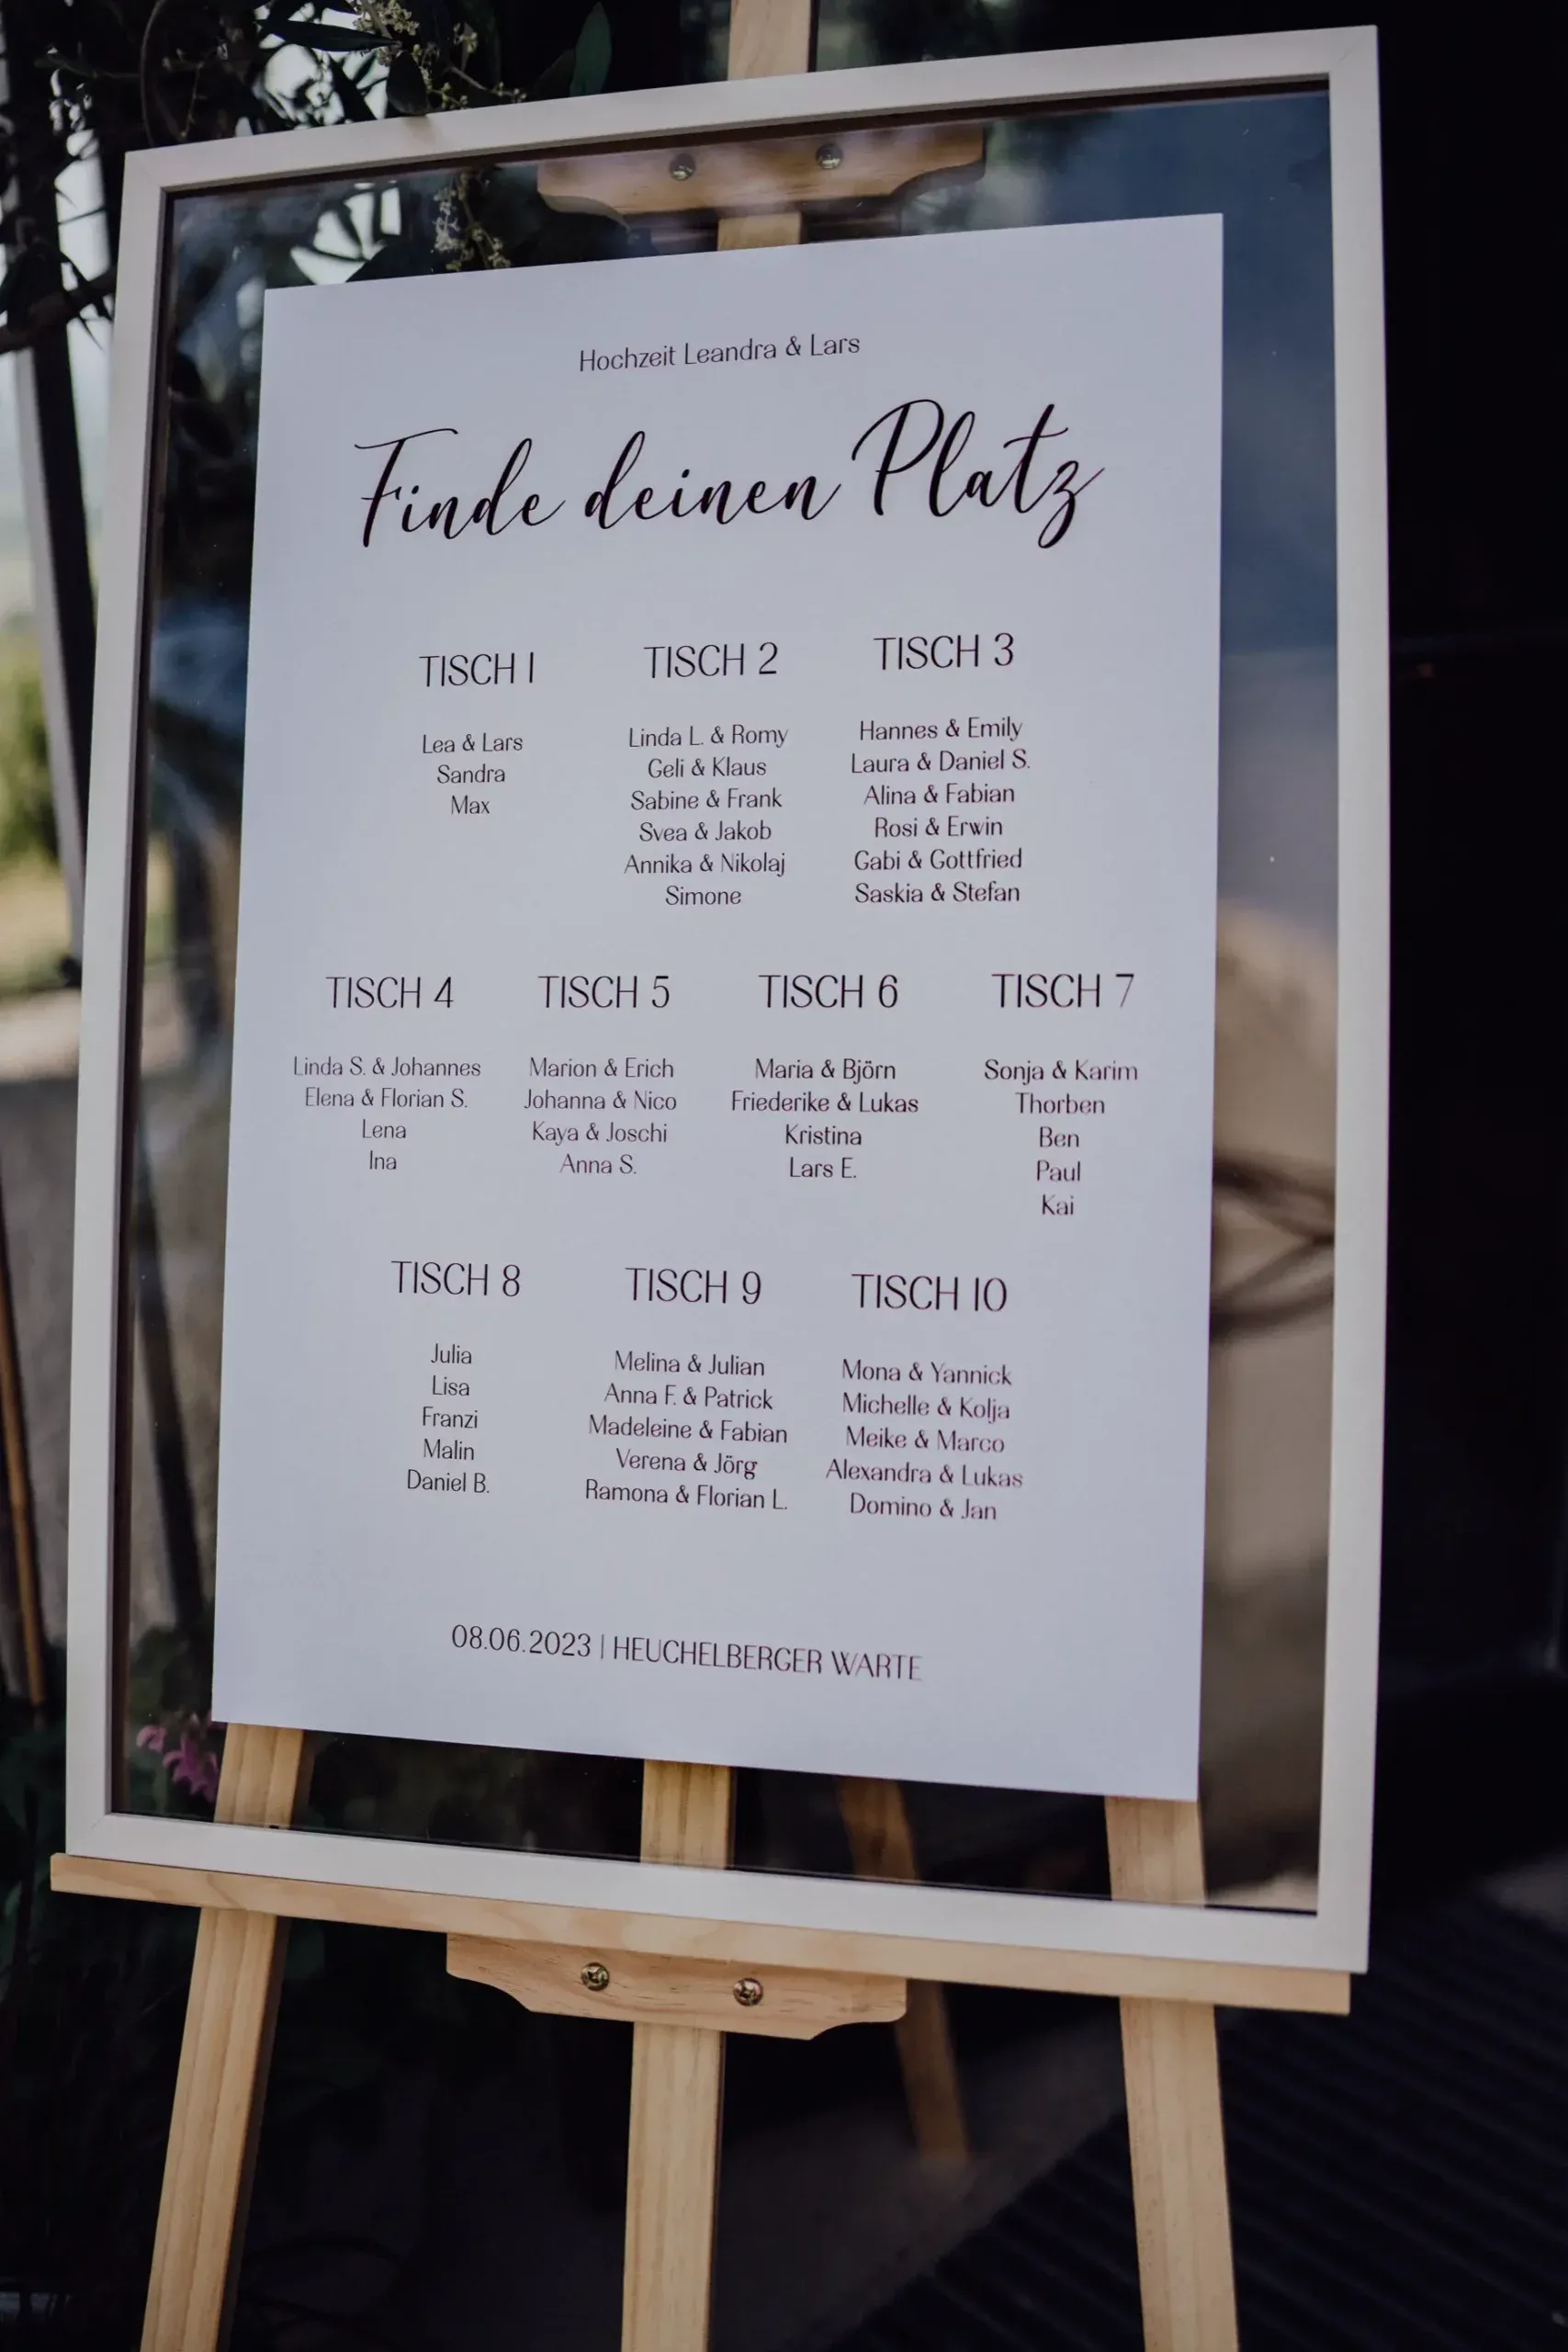 Hochzeit Leandra & Lars
Finde deinen Platz
TISCH 1
Lea & Lars
Sandra
Max
TISCH 2
Linda L. & Romy
Geli & Klaus
Sabine & Frank
Svea & Jakob
Annika & Nikolaj
Simone
TISCH 3
Hannes & Emily
Laura & Daniel S.
Alina & Fabian
Rosi & Erwin
Gabi & Gottfried
Saskia & Stefan
TISCH 4
Linda S. & Johannes
Elena & Florian S.
Lena
Ina
TISCH 5
Marion & Erich
Johanna & Nico
Kaya & Joschi
Anna S.
TISCH 6
Maria & Björn
Friederike & Lukas
Kristina
Lars E.
TISCH 7
Sonja & Karim
Thorben
Ben
Paul
Kai
TISCH 8
Julia
Lisa
Franzi
Malin
Daniel B.
TISCH 9
Melina & Julian
Anna F. & Patrick
Madeleine & Fabian
Verena & Jörg
Ramona & Florian L.
TISCH 10
Mona & Yannick
Michelle & Kolja
Meike & Marco
Alexandra & Lukas
Domino & Jan
08.06.2023 | HEUCHELBERGER WARTE